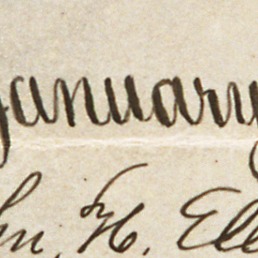 January
hn. H. Ell